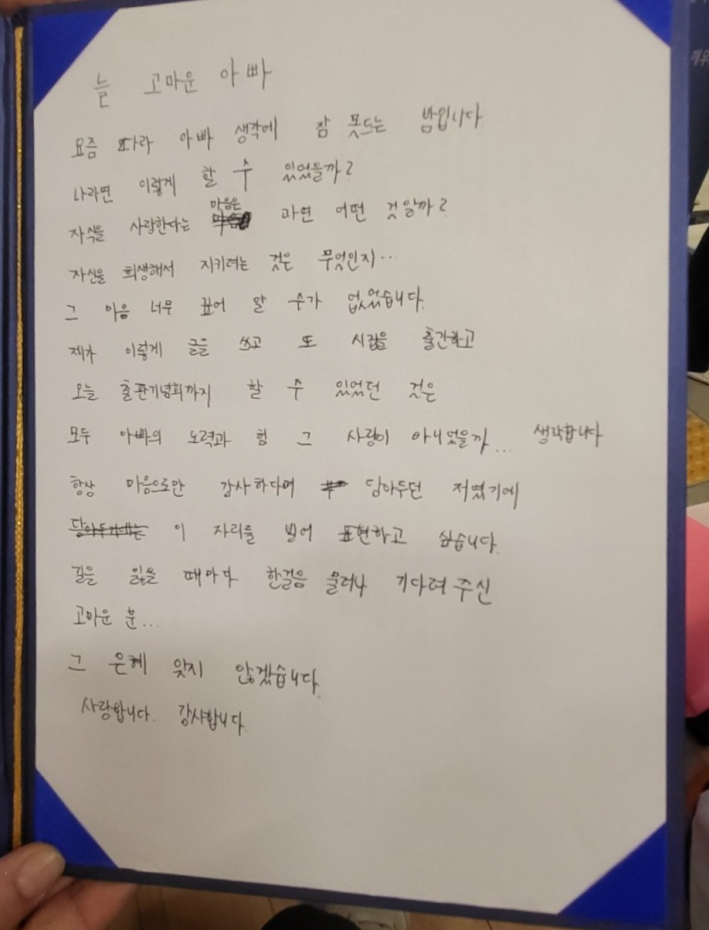 늘 고마운 아빠
요즘 따라 아빠 생각에 잠 못드는 밤입니다
나라면 이렇게 할 수 있었을까?
자식을 사랑한다는 마음은 과연 어떤 것일까?
자신을 희생해서 지키려는 것은 무엇인지...
그 마음 너무 깊어 알 수가 없었습니다.
제가 이렇게 글을 쓰고 또 시집을 출간하고
오늘 출판기념회까지 할 수 있었던 것은
모두 아빠의 노력과 힘 그 사랑이 아니었을까... 생각합니다
항상 마음으로만 감사하다며 담아두던 저였기에
이 자리를 빌어 표현하고 싶습니다.
길을 잃을 때마다 한걸음 물러나 기다려 주신
고마운 분...
그 은혜 잊지 않겠습니다.
사랑합니다. 감사합니다.